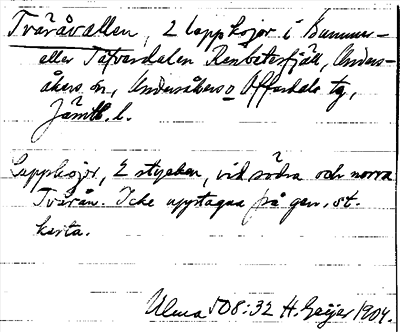 Tväråvallen, 2 lappkojor i Bummer-
eller Tåfvardalen Renbetesfjäll, Unders-
åkers sn, Undersåkers o Offerdals tg,
Jämtl. l.
Lappkojor, 2 stycken, vid södra och norra
Tvärån. Icke upptagna på gen. st.
karta.
Ulma 508:32 H. Geijer 1904.